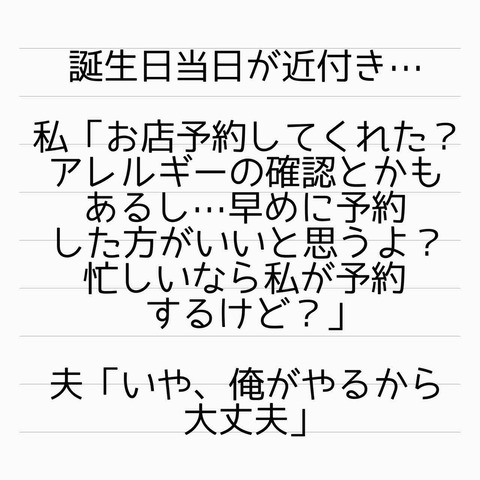 誕生日当日が近付き…
私「お店予約してくれた？
アレルギーの確認とかも
あるし…早めに予約
した方がいいと思うよ？
忙しいなら私が予約
するけど？」
夫「いや、俺がやるから
大丈夫」